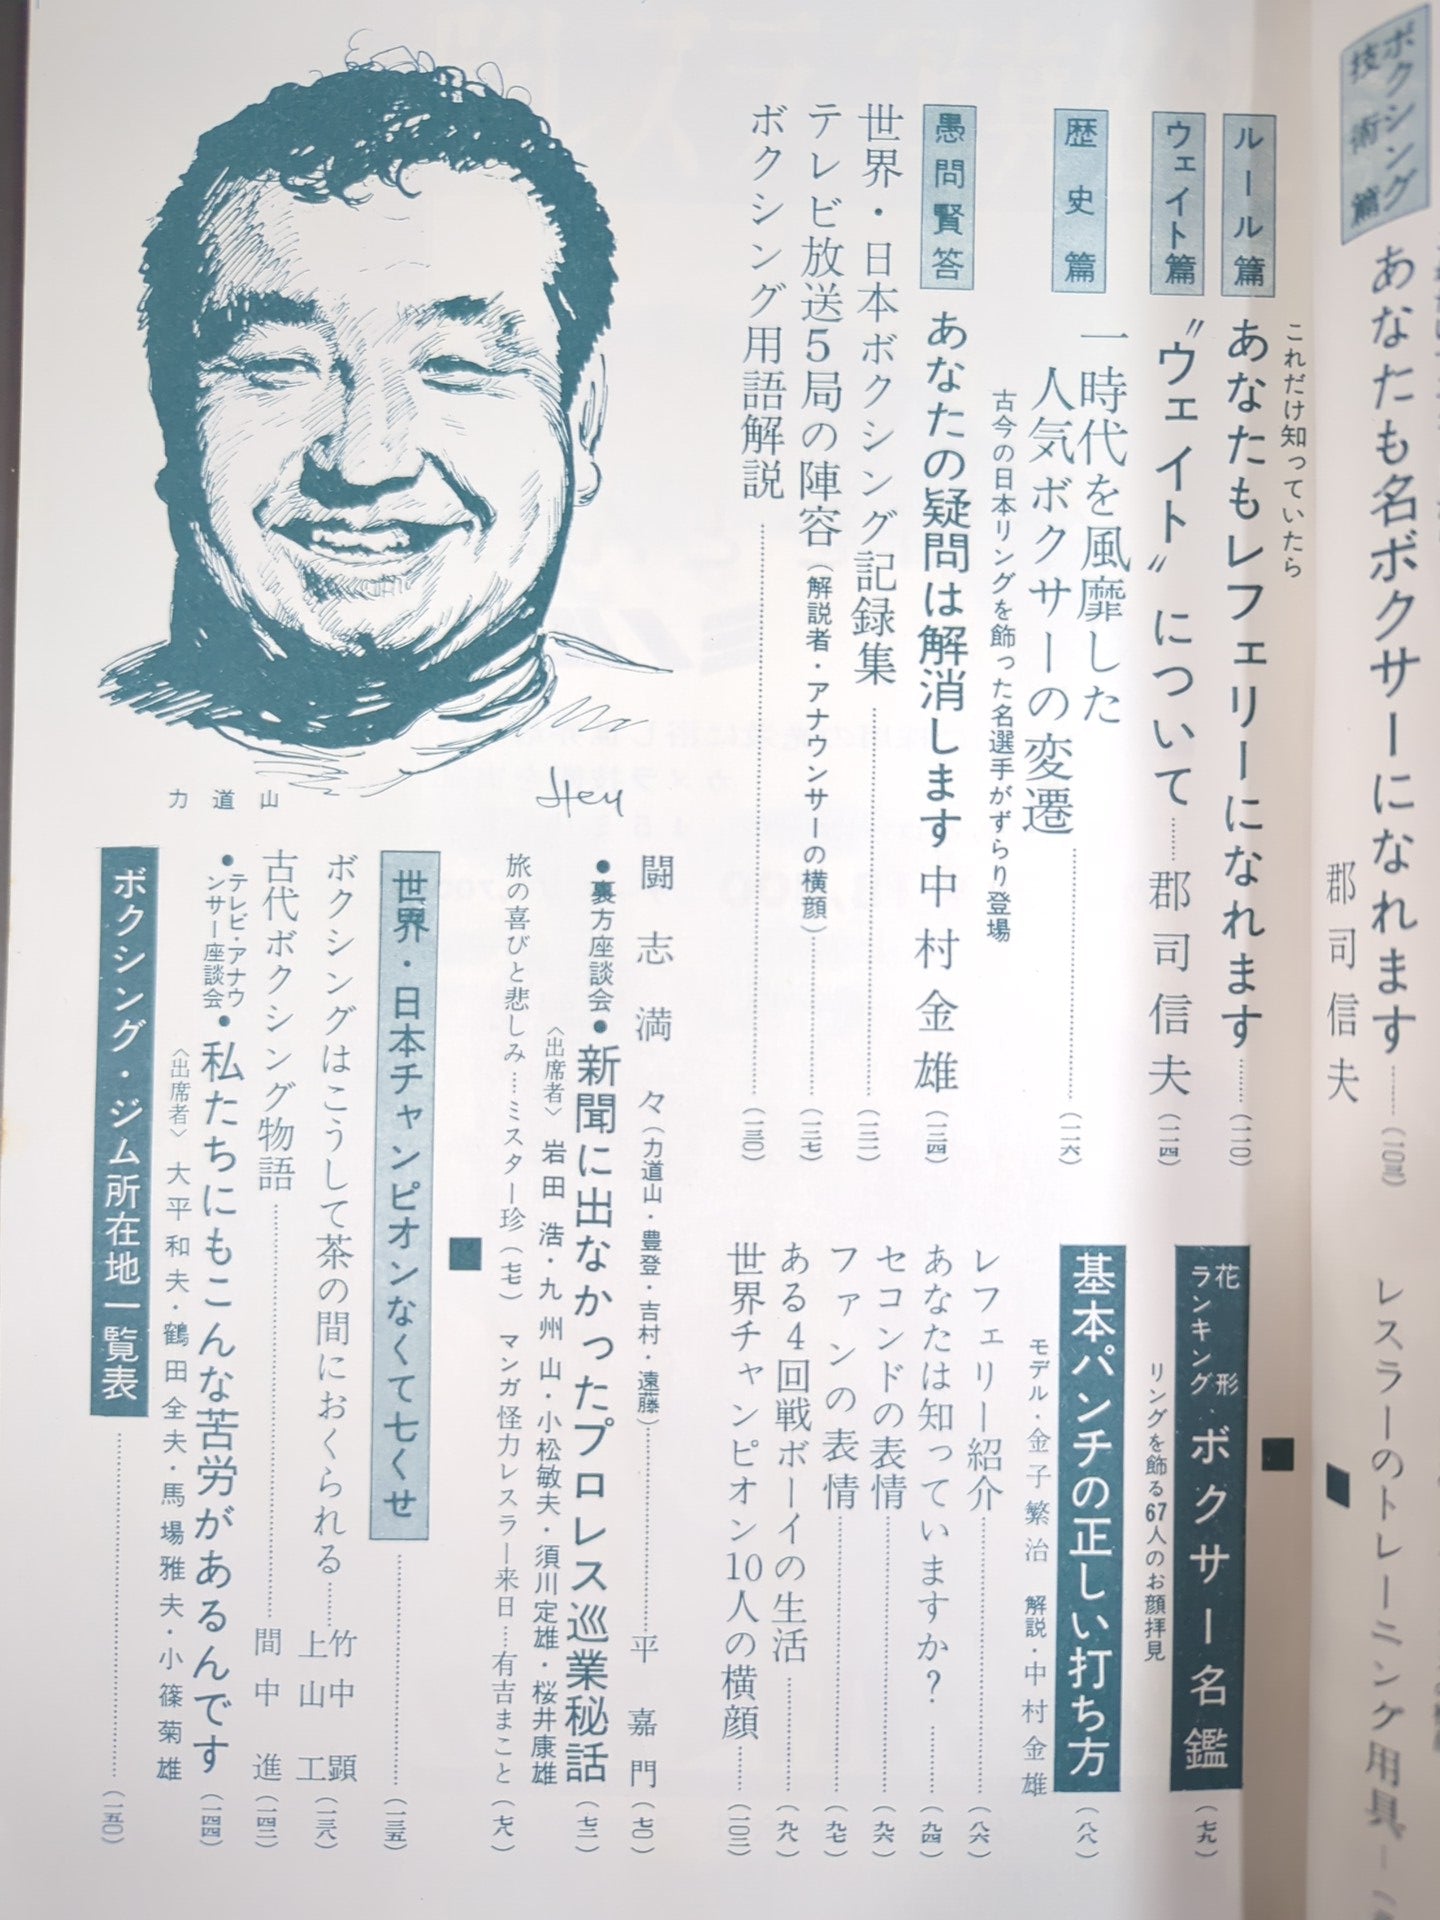 ボクシング
技術篇
あなたも名ボクサーになれます
郡司信夫
(一〇三)
レスラーのトレーニング用具
これだけ知っていたら
ルール篇
あなたもレフェリーになれます
(一一〇)
ウェイト篇
〝ウェイト〟について
郡司信夫
(一一四)
歴史篇
一時代を風靡した
人気ボクサーの変遷
(一一六)
古今の日本リングを飾った名選手がずらり登場
愚問賢答
あなたの疑問は解消します
中村金雄
(一二四)
世界・日本ボクシング記録集
テレビ放送5局の陣容(解説者・アナウンサーの横顔)
(一二七)
ボクシング用語解説
(一三〇)
花形
ランキング
ボクサー名鑑
(七九)
リングを飾る67人のお顔拝見
基本パンチの正しい打ち方
(八八)
モデル・金子繁治 解説・中村金雄
レフェリー紹介
(八六)
あなたは知っていますか?
(九四)
セコンドの表情
(九六)
ファンの表情
(九七)
ある4回戦ボーイの生活
(九八)
世界チャンピオン10人の横顔
(一〇二)
力道山
Hey
闘志満々(力道山・豊登・吉村・遠藤)
平嘉門
(七〇)
●裏方座談会●新聞に出なかったプロレス巡業秘話
(七二)
〈出席者〉岩田浩・九州山・小松敏夫・須川定雄・桜井康雄
旅の喜びと悲しみ…ミスター珍(七七)
マンガ怪力レスラー来日…有吉まこと(七八)
世界・日本チャンピオンなくて七くせ
(一三五)
ボクシングはこうして茶の間におくられる
竹中顕
上山工
(一三八)
古代ボクシング物語
間中進
(一四二)
●テレビ・アナウンサー座談会●私たちにもこんな苦労があるんです
(一四四)
〈出席者〉大平和夫・鶴田全夫・馬場雅夫・小篠菊雄
ボクシング・ジム所在地一覧表
(一五〇)